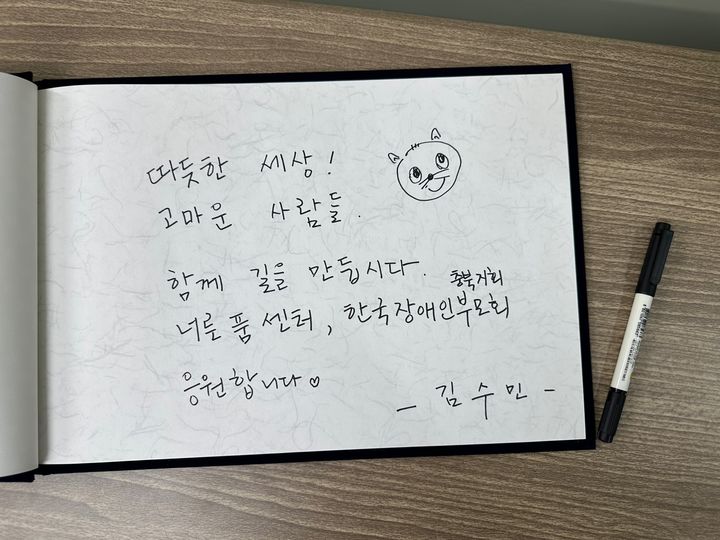 따듯한 세상!
고마운 사람들.
함께 길을 만듭시다.
충북지회
너른품센터, 한국장애인부모회
응원합니다♡
- 김수민 -